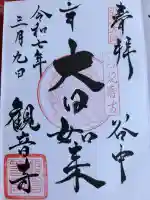 奉拝
谷中
大日如来
令和七年
三月九日
観音寺